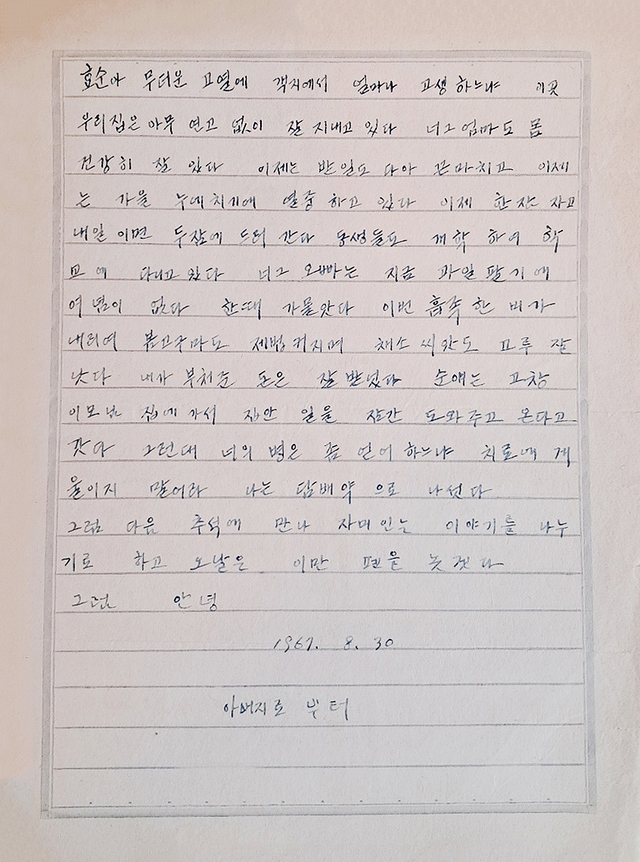 효순아 무더운 고열에 객지에서 얼마나 고생하느냐 이곳
우리집은 아무 연고 없이 잘 지내고 있다 너그 엄마도 몸
건강히 잘 있다 이제는 밭일도 다아 끈마치고 이제
는 가을 누에치기에 열중 하고 있다 이제 한잠 자고
내일 이면 두잠에 드러 간다 동생들도 개학 하여 학
교에 다니고 있다 너그 오빠는 지금 과일 팔기에
여염이 없다 한때 가물앗다 이번 흡족한 비가
내리여 붉고구마도 제법 커지며 채소 씨앗도 고루 잘
낫다 네가 부처준 돈은 잘 받엇다 순애는 고창
이모님 집에 가서 집안 일을 잠간 도와주고 온다고
갓다 그런대 너의 병은 좀 언어하느냐 치료에 게
을이지 말어라 나는 담배약 으로 나섯다
그럼 다음 추석에 만나 자미인는 이야기를 나누
기로 하고 오날은 이만 펜을 놋켓다
그럼 안녕
1967. 8. 30
아버지로 부터